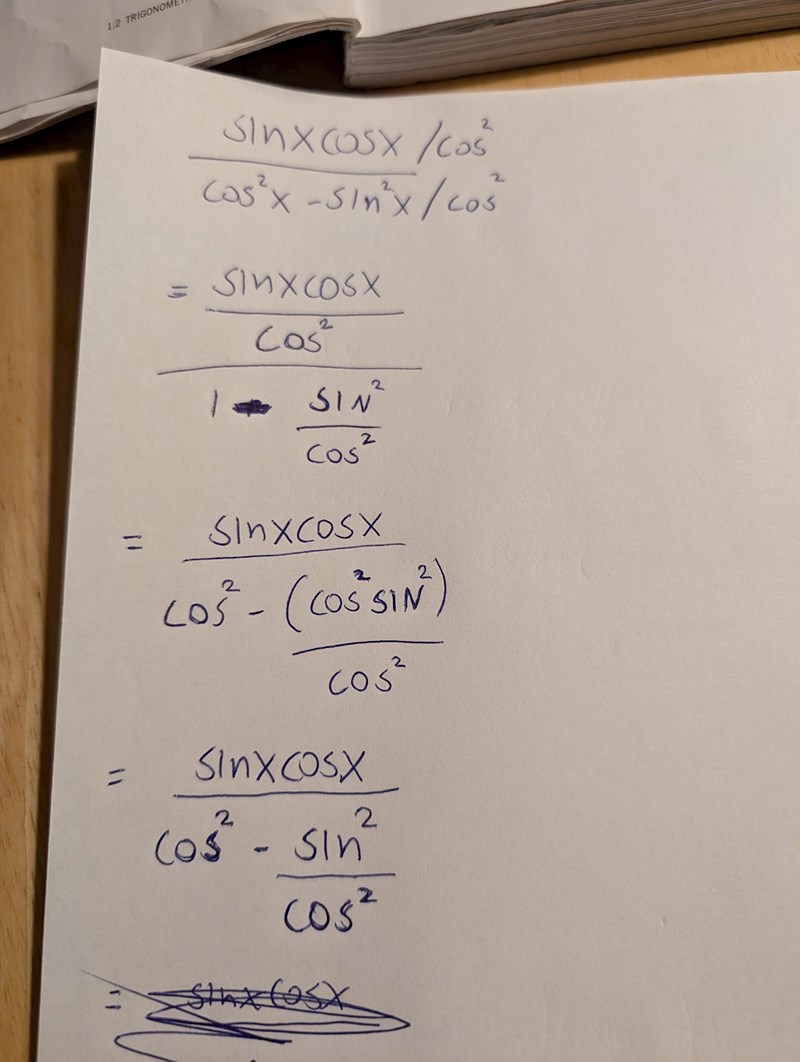 1.2 TRIGONOME
sinxcosx /cos²
cos²x - sin²x / cos²
= sinxcosx
cos²
1 - SIN²
cos²
= sinxcosx
cos² - (cos² SIN²)
cos²
= sinxcosx
cos² - sin²
cos²
= sinxcosx